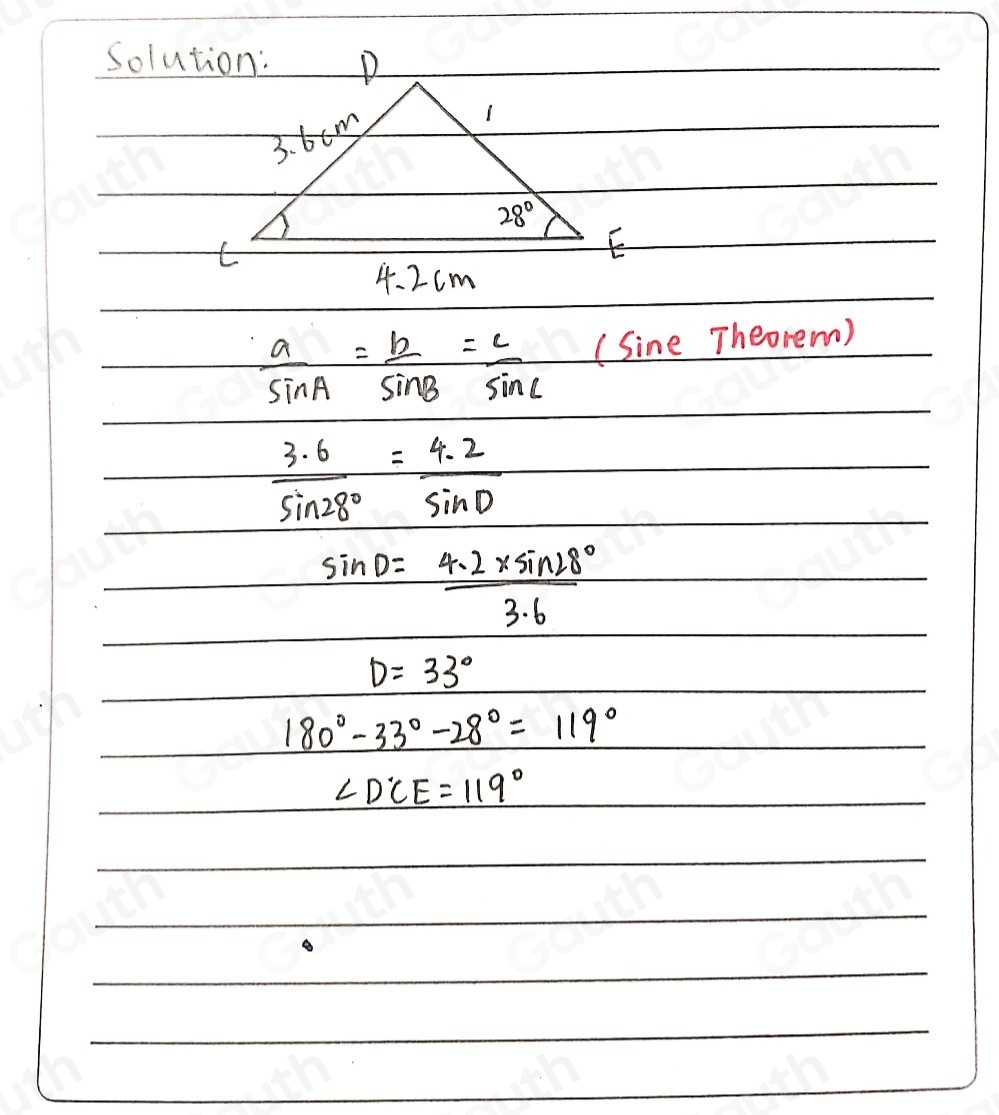 Solution:
D
3.6cm
28°
C
E
4.2cm
a/sinA = b/sinB = c/sinC (Sine Theorem)
3.6/sin28° = 4.2/sinD
sinD= 4.2×sin28°/3.6
D= 33°
180°-33°-28°= 119°
∠DCE=119°
Gauth